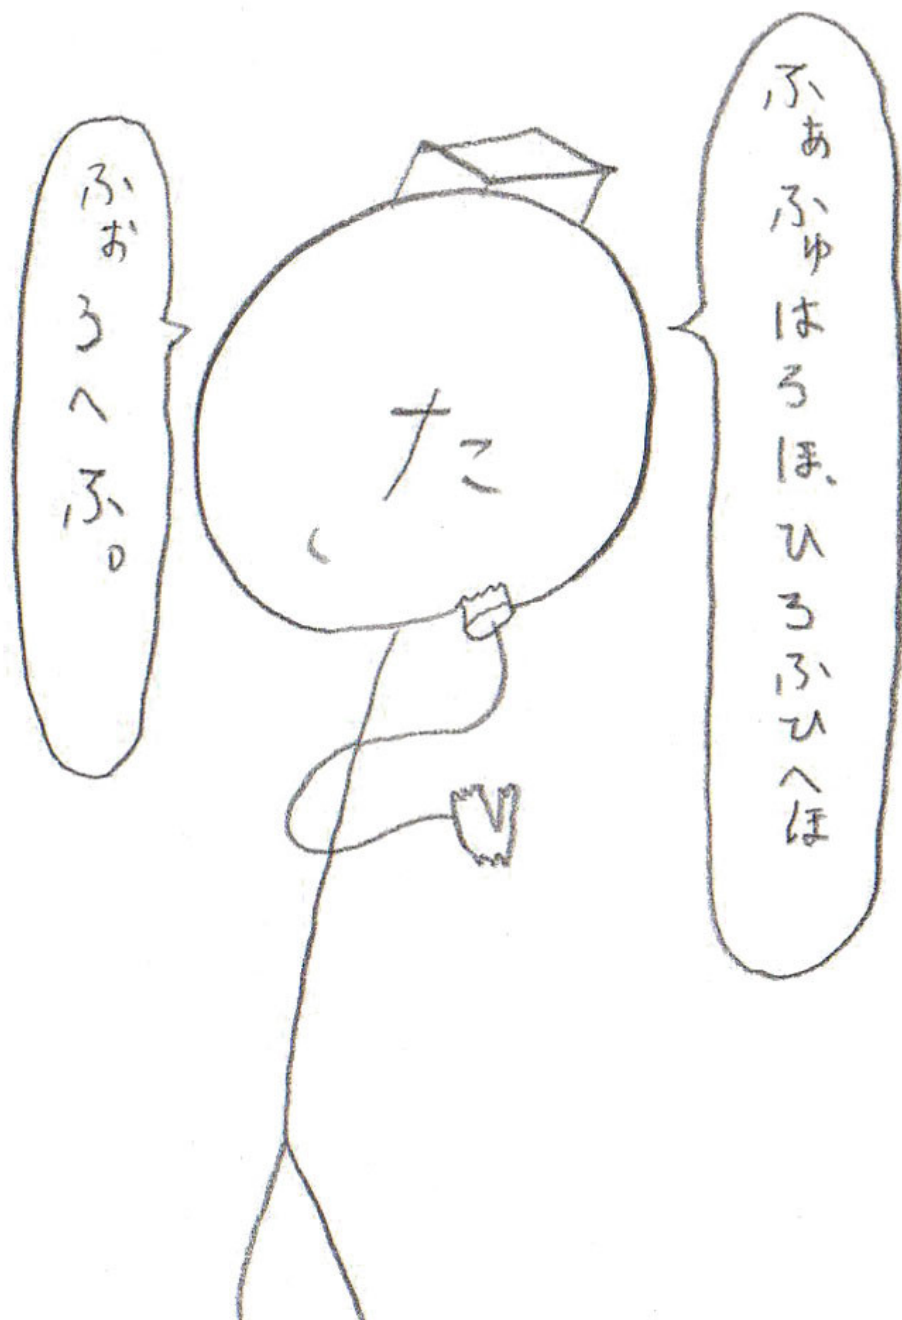 ふぁふゅはろほ、ひろふひへほ
た
ふぉろへふ。